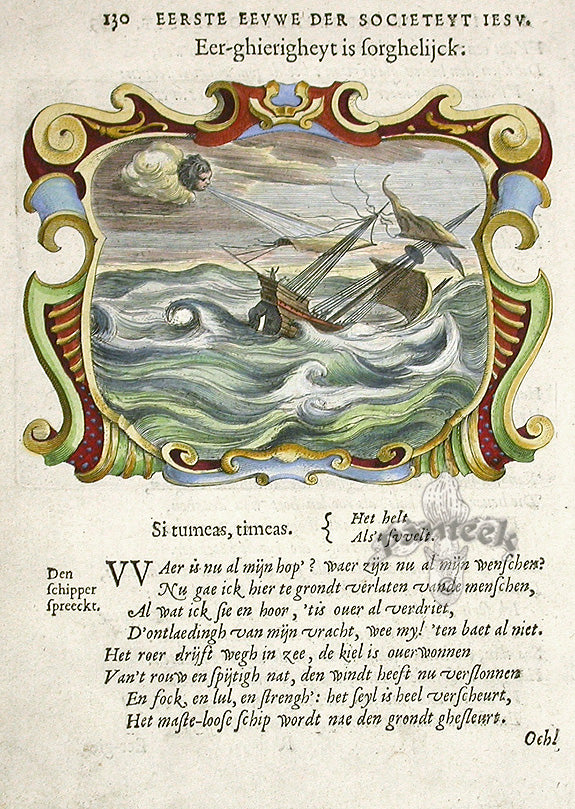 130 EERSTE EEVWE DER SOCIETEYT IESV.
Eer-ghierigheyt is ſorghelijck:
Si tumeas, timeas. { Het helt
Als't ſvvelt.
Den
ſchipper
ſpreeckt.
VVAer is nu al mijn hop'? waer zijn nu al mijn wenſchen?
Nu gae ick hier te grondt verlaten vande menſchen,
Al wat ick ſie en hoor, 'tis ouer al verdriet,
D'ontlaedingh van mijn vracht, wee my! 'ten baet al niet.
Het roer drijft wegh in zee, de kiel is ouerwonnen
Van't rouw en ſpijtigh nat, den windt heeft nu verſlonnen
En fock, en lul, en ſtrengh': het ſeyl is heel verſcheurt,
Het maſte-looſe ſchip wordt nae den grondt gheſleurt.
Och!
panteek